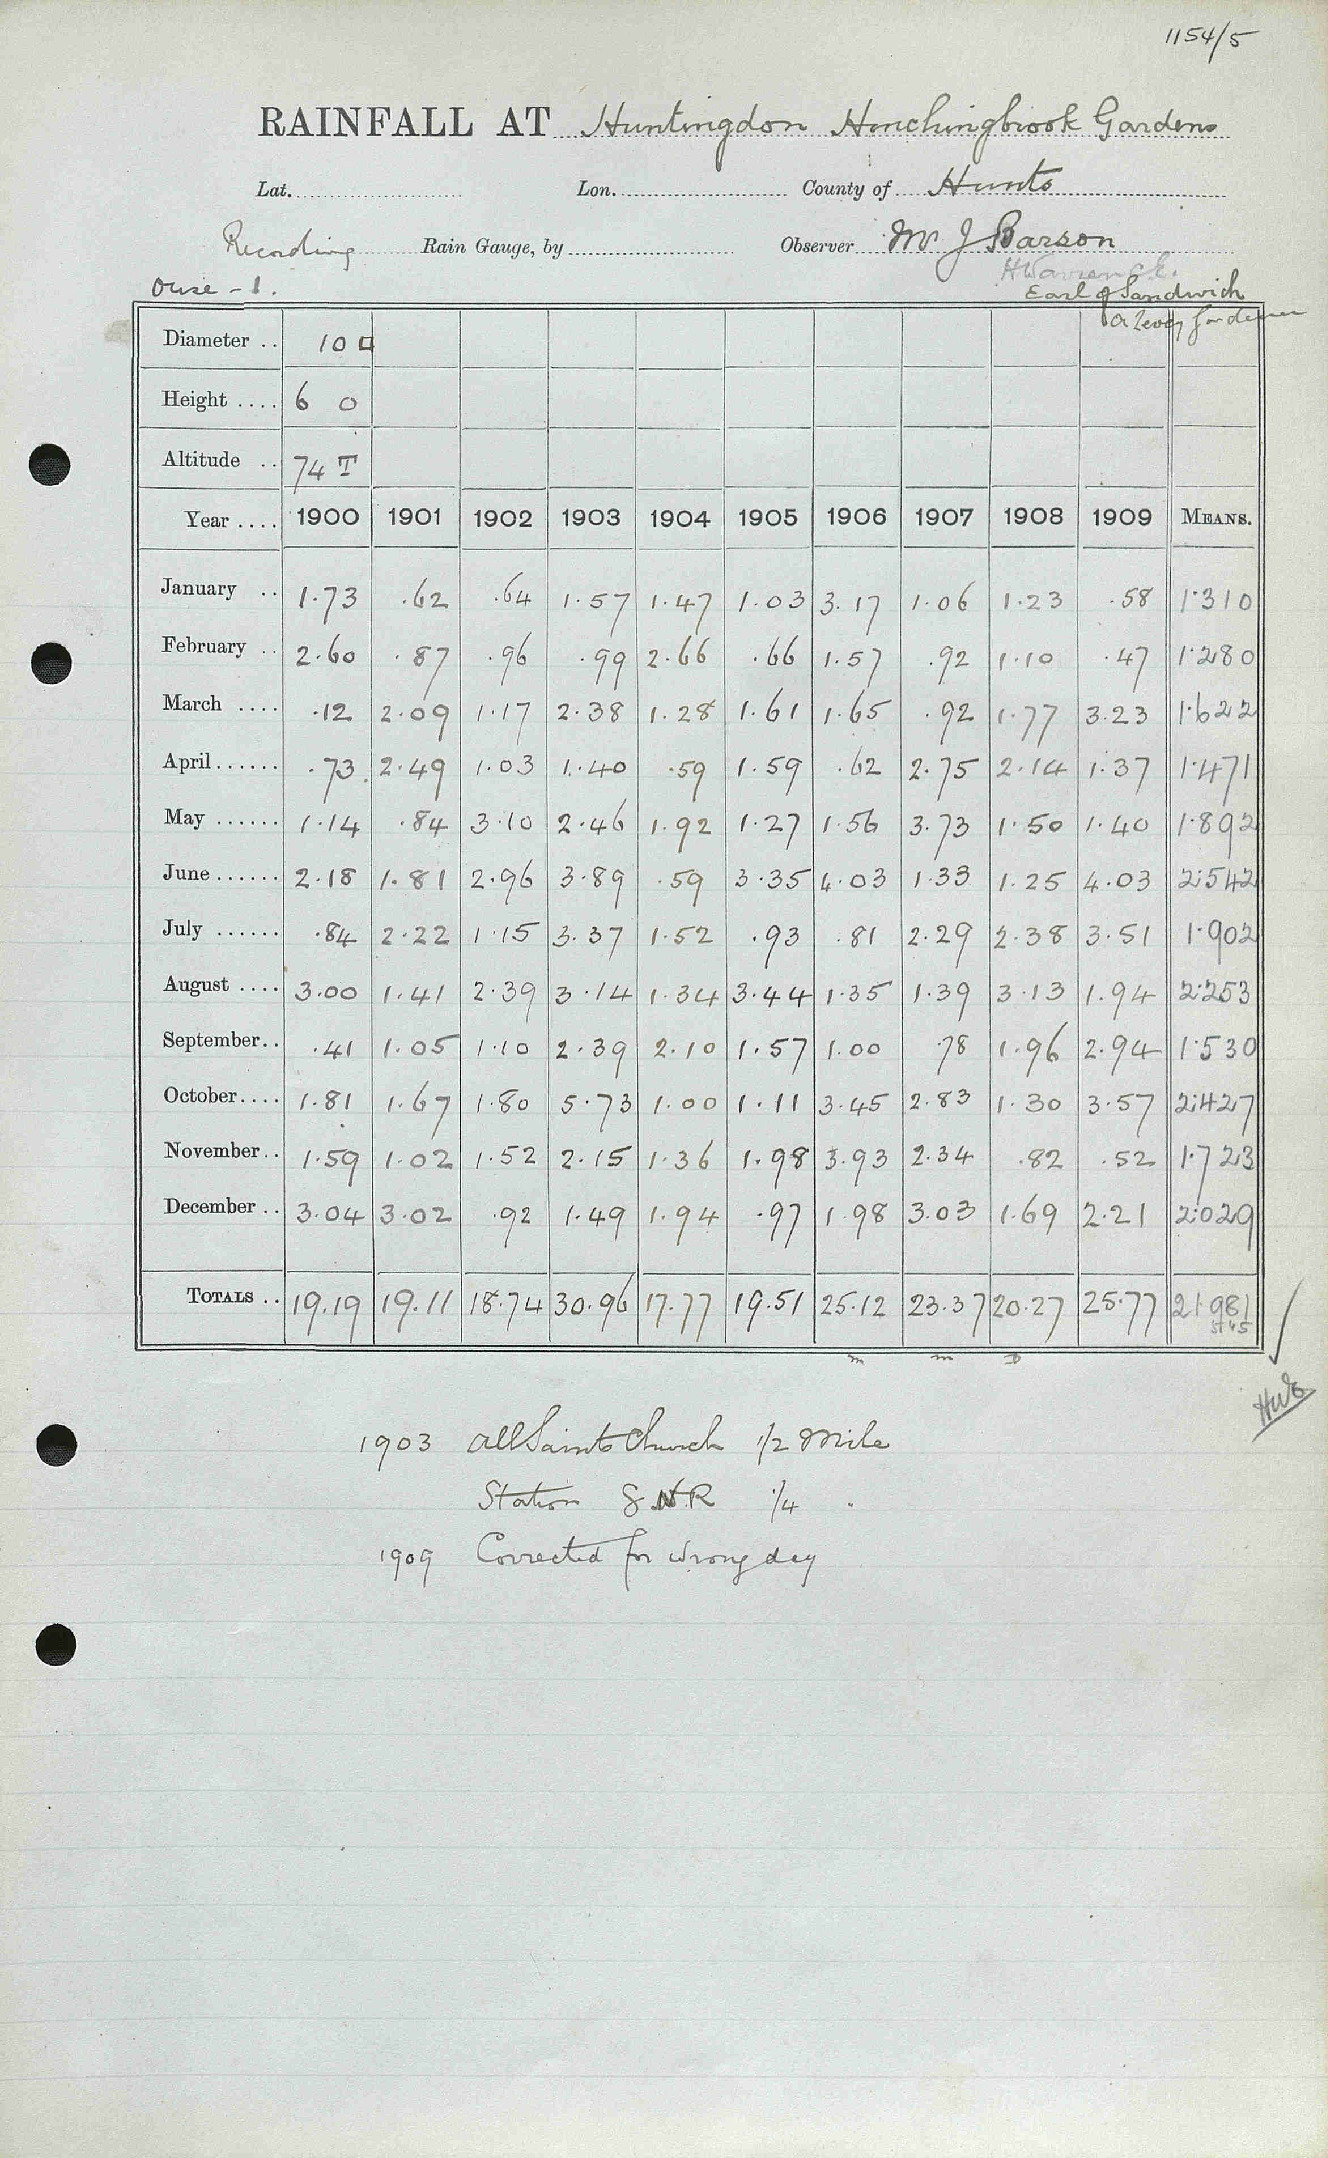 1154/5
RAINFALL AT Huntingdon Hinchingbrook Gardens
Lat. Lon. County of Hunts
Recording Rain Gauge, by Observer Mr J Barson
H Warrender
Ouse - 1. Earl of Sandwich
Diameter .. 10 □
Height .... 6 0
Altitude .. 74 T
Year .... 1900 1901 1902 1903 1904 1905 1906 1907 1908 1909 MEANS.
January .. 1.73 .62 .64 1.57 1.47 1.03 3.17 1.06 1.23 .58 1.310
February .. 2.60 .87 .96 .99 2.66 .66 1.57 .92 1.10 .47 1.280
March .... .12 2.09 1.17 2.38 1.28 1.61 1.65 .92 1.77 3.23 1.622
April ...... .73 2.49 1.03 1.40 .59 1.59 .62 2.75 2.14 1.37 1.471
May ...... 1.14 .84 3.10 2.46 1.92 1.27 1.56 3.73 1.50 1.40 1.892
June ...... 2.18 1.81 2.96 3.89 .59 3.35 4.03 1.33 1.25 4.03 2.542
July ...... .84 2.22 1.15 3.37 1.52 .93 .81 2.29 2.38 3.51 1.902
August .... 3.00 1.41 2.39 3.14 1.34 3.44 1.35 1.39 3.13 1.94 2.253
September.. .41 1.05 1.10 2.39 2.10 1.57 1.00 .78 1.96 2.94 1.530
October.... 1.81 1.67 1.80 5.73 1.00 1.11 3.45 2.83 1.30 3.57 2.427
November.. 1.59 1.02 1.52 2.15 1.36 1.98 3.93 2.34 .82 .52 1.723
December .. 3.04 3.02 .92 1.49 1.94 .97 1.98 3.03 1.69 2.21 2.029
TOTALS .. 19.19 19.11 18.74 30.96 17.77 19.51 25.12 23.37 20.27 25.77 21.981
m m D
1903 All Saints Church 1/2 Mile
Station G N R 1/4 "
1909 Corrected for wrong day